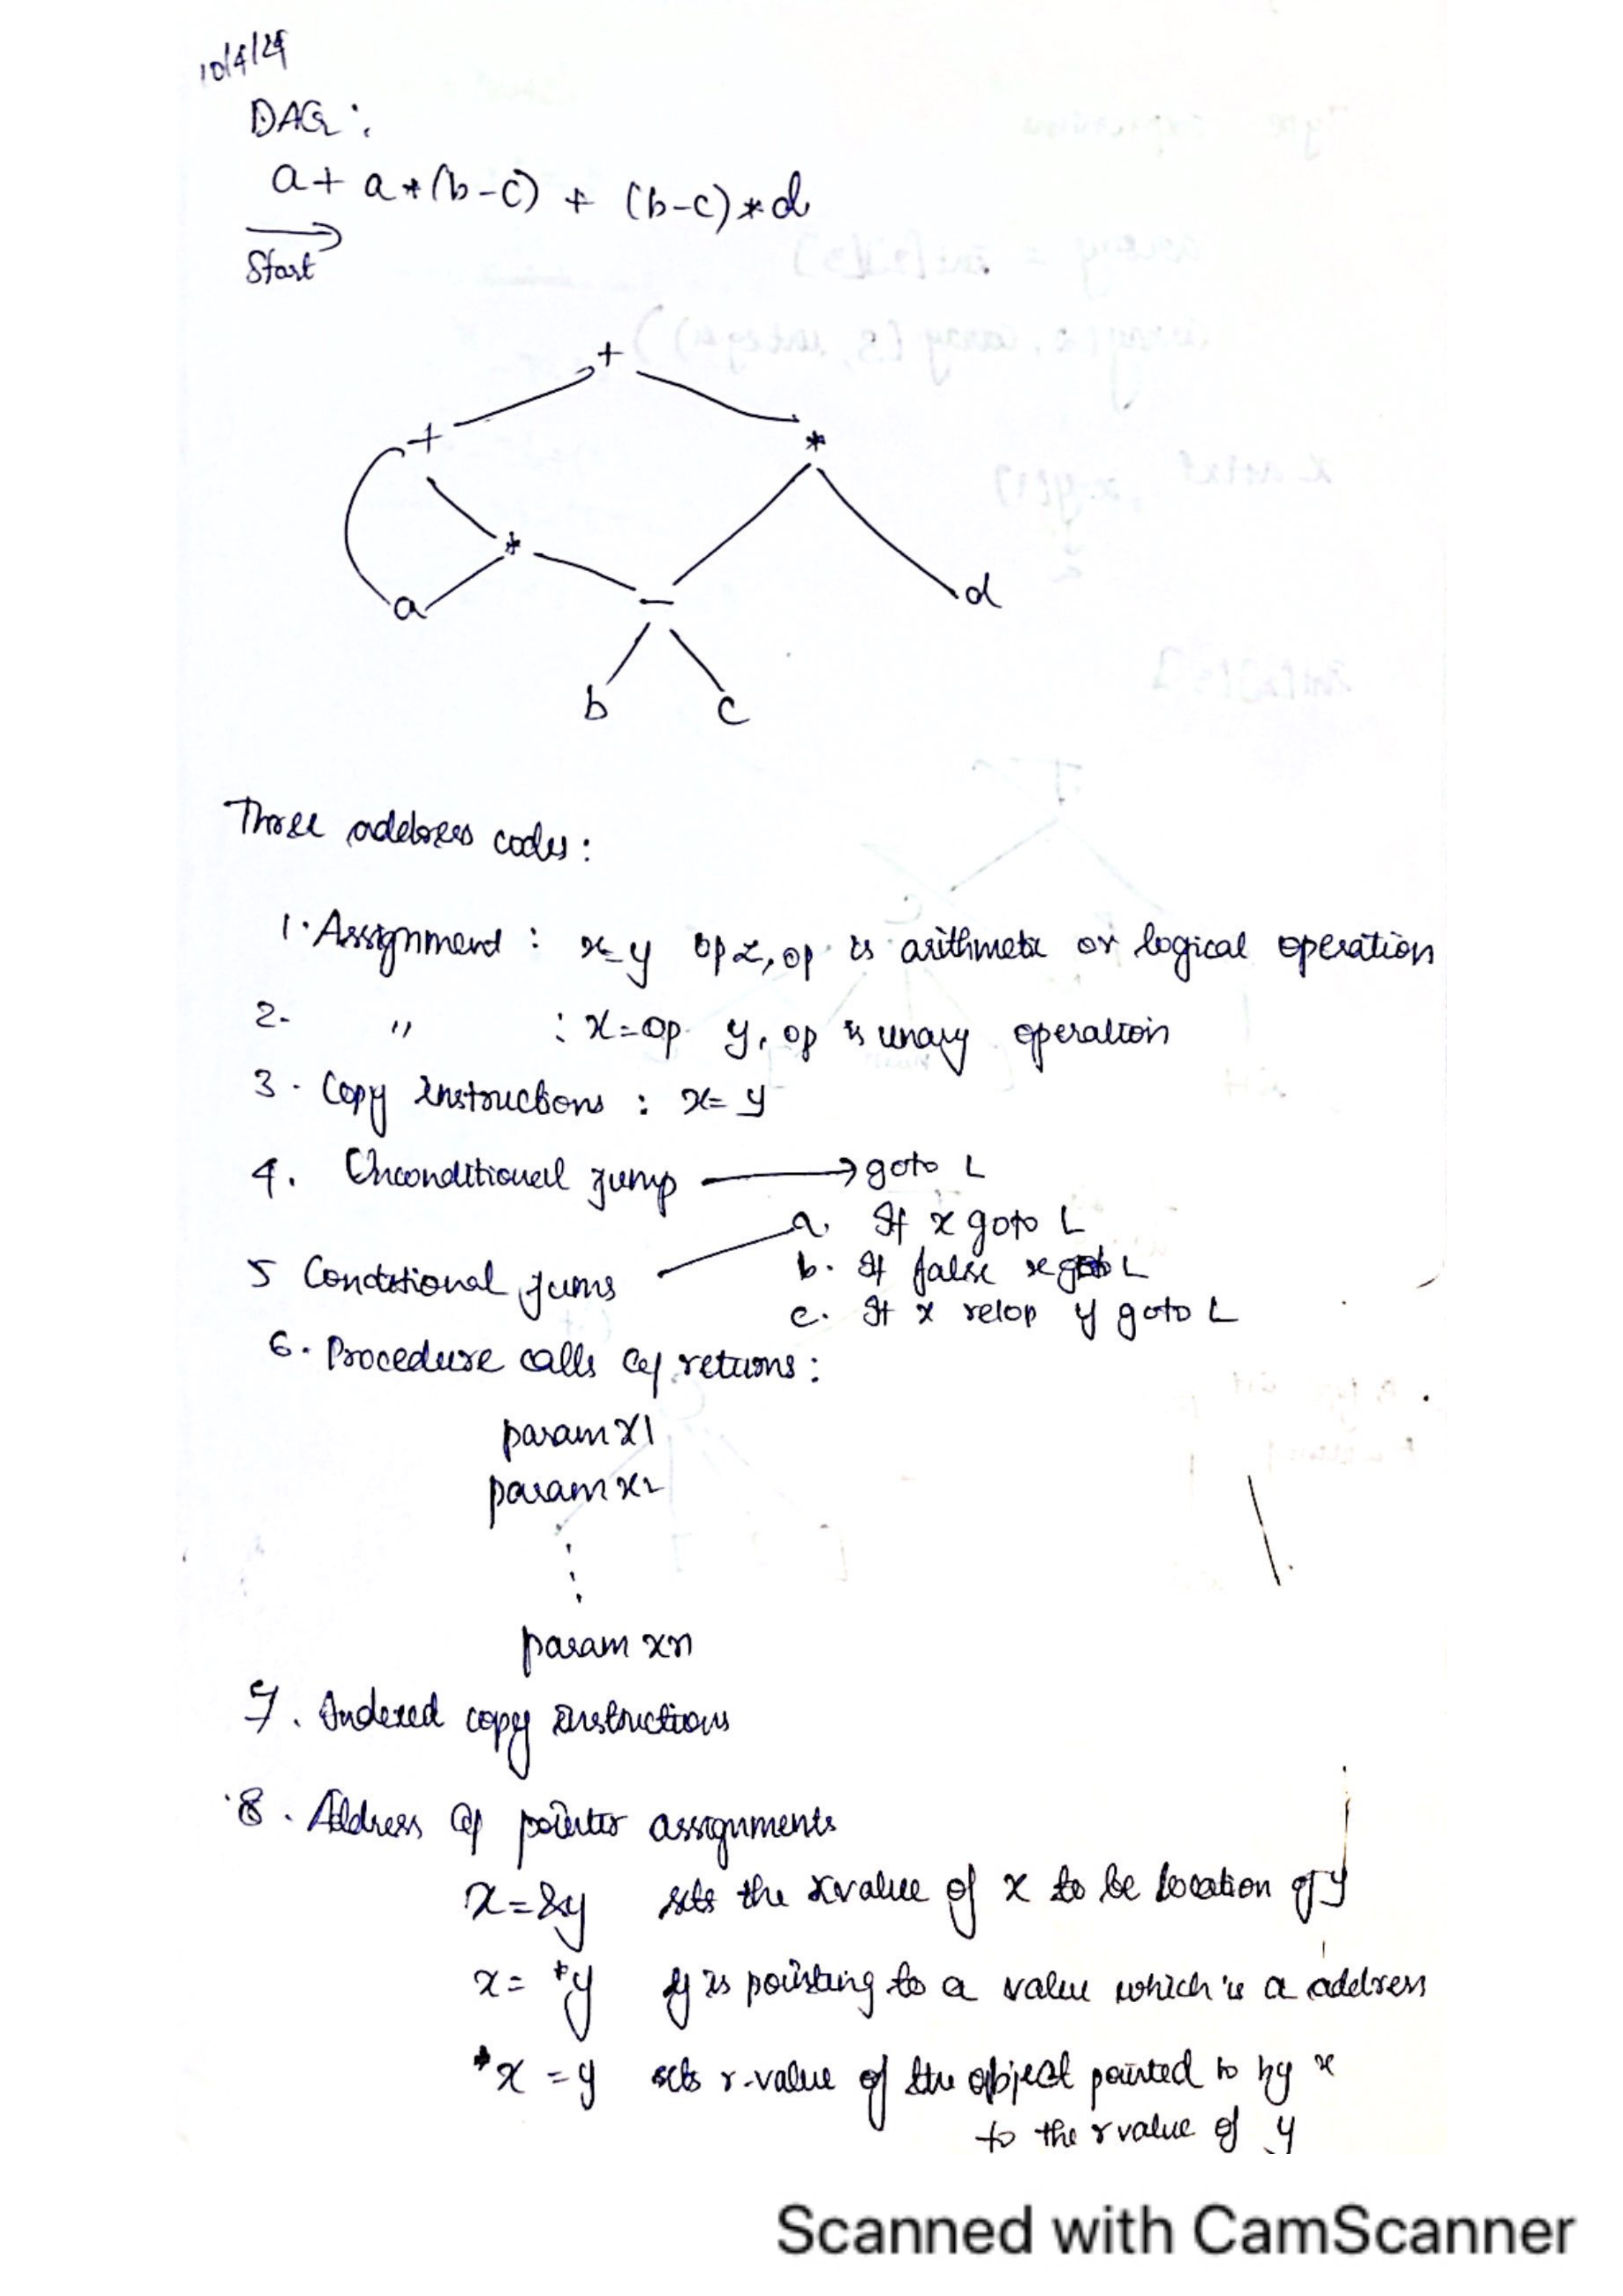 10/4/24
DAG:
a + a * (b-c) + (b-c) * d
Start
+
+ *
*
a - d
b c
Three address codes:
1. Assignment : x=y op z, op is arithmetic or logical operation
2. " : x=op y, op is unary operation
3. Copy instructions : x= y
4. Unconditional jump → goto L
a. If x goto L
5 Conditional jums
b. If false x goto L
c. If x relop y goto L
6. Procedure calls & returns:
param x1
param x2
⋮
param xn
7. Indexed copy instructions
8. Address & pointer assignments
x=&y sets the rvalue of x to be location of y
x= *y y is pointing to a value which is a address
*x = y sets r-value of the object pointed to by x
to the rvalue of y
Scanned with CamScanner